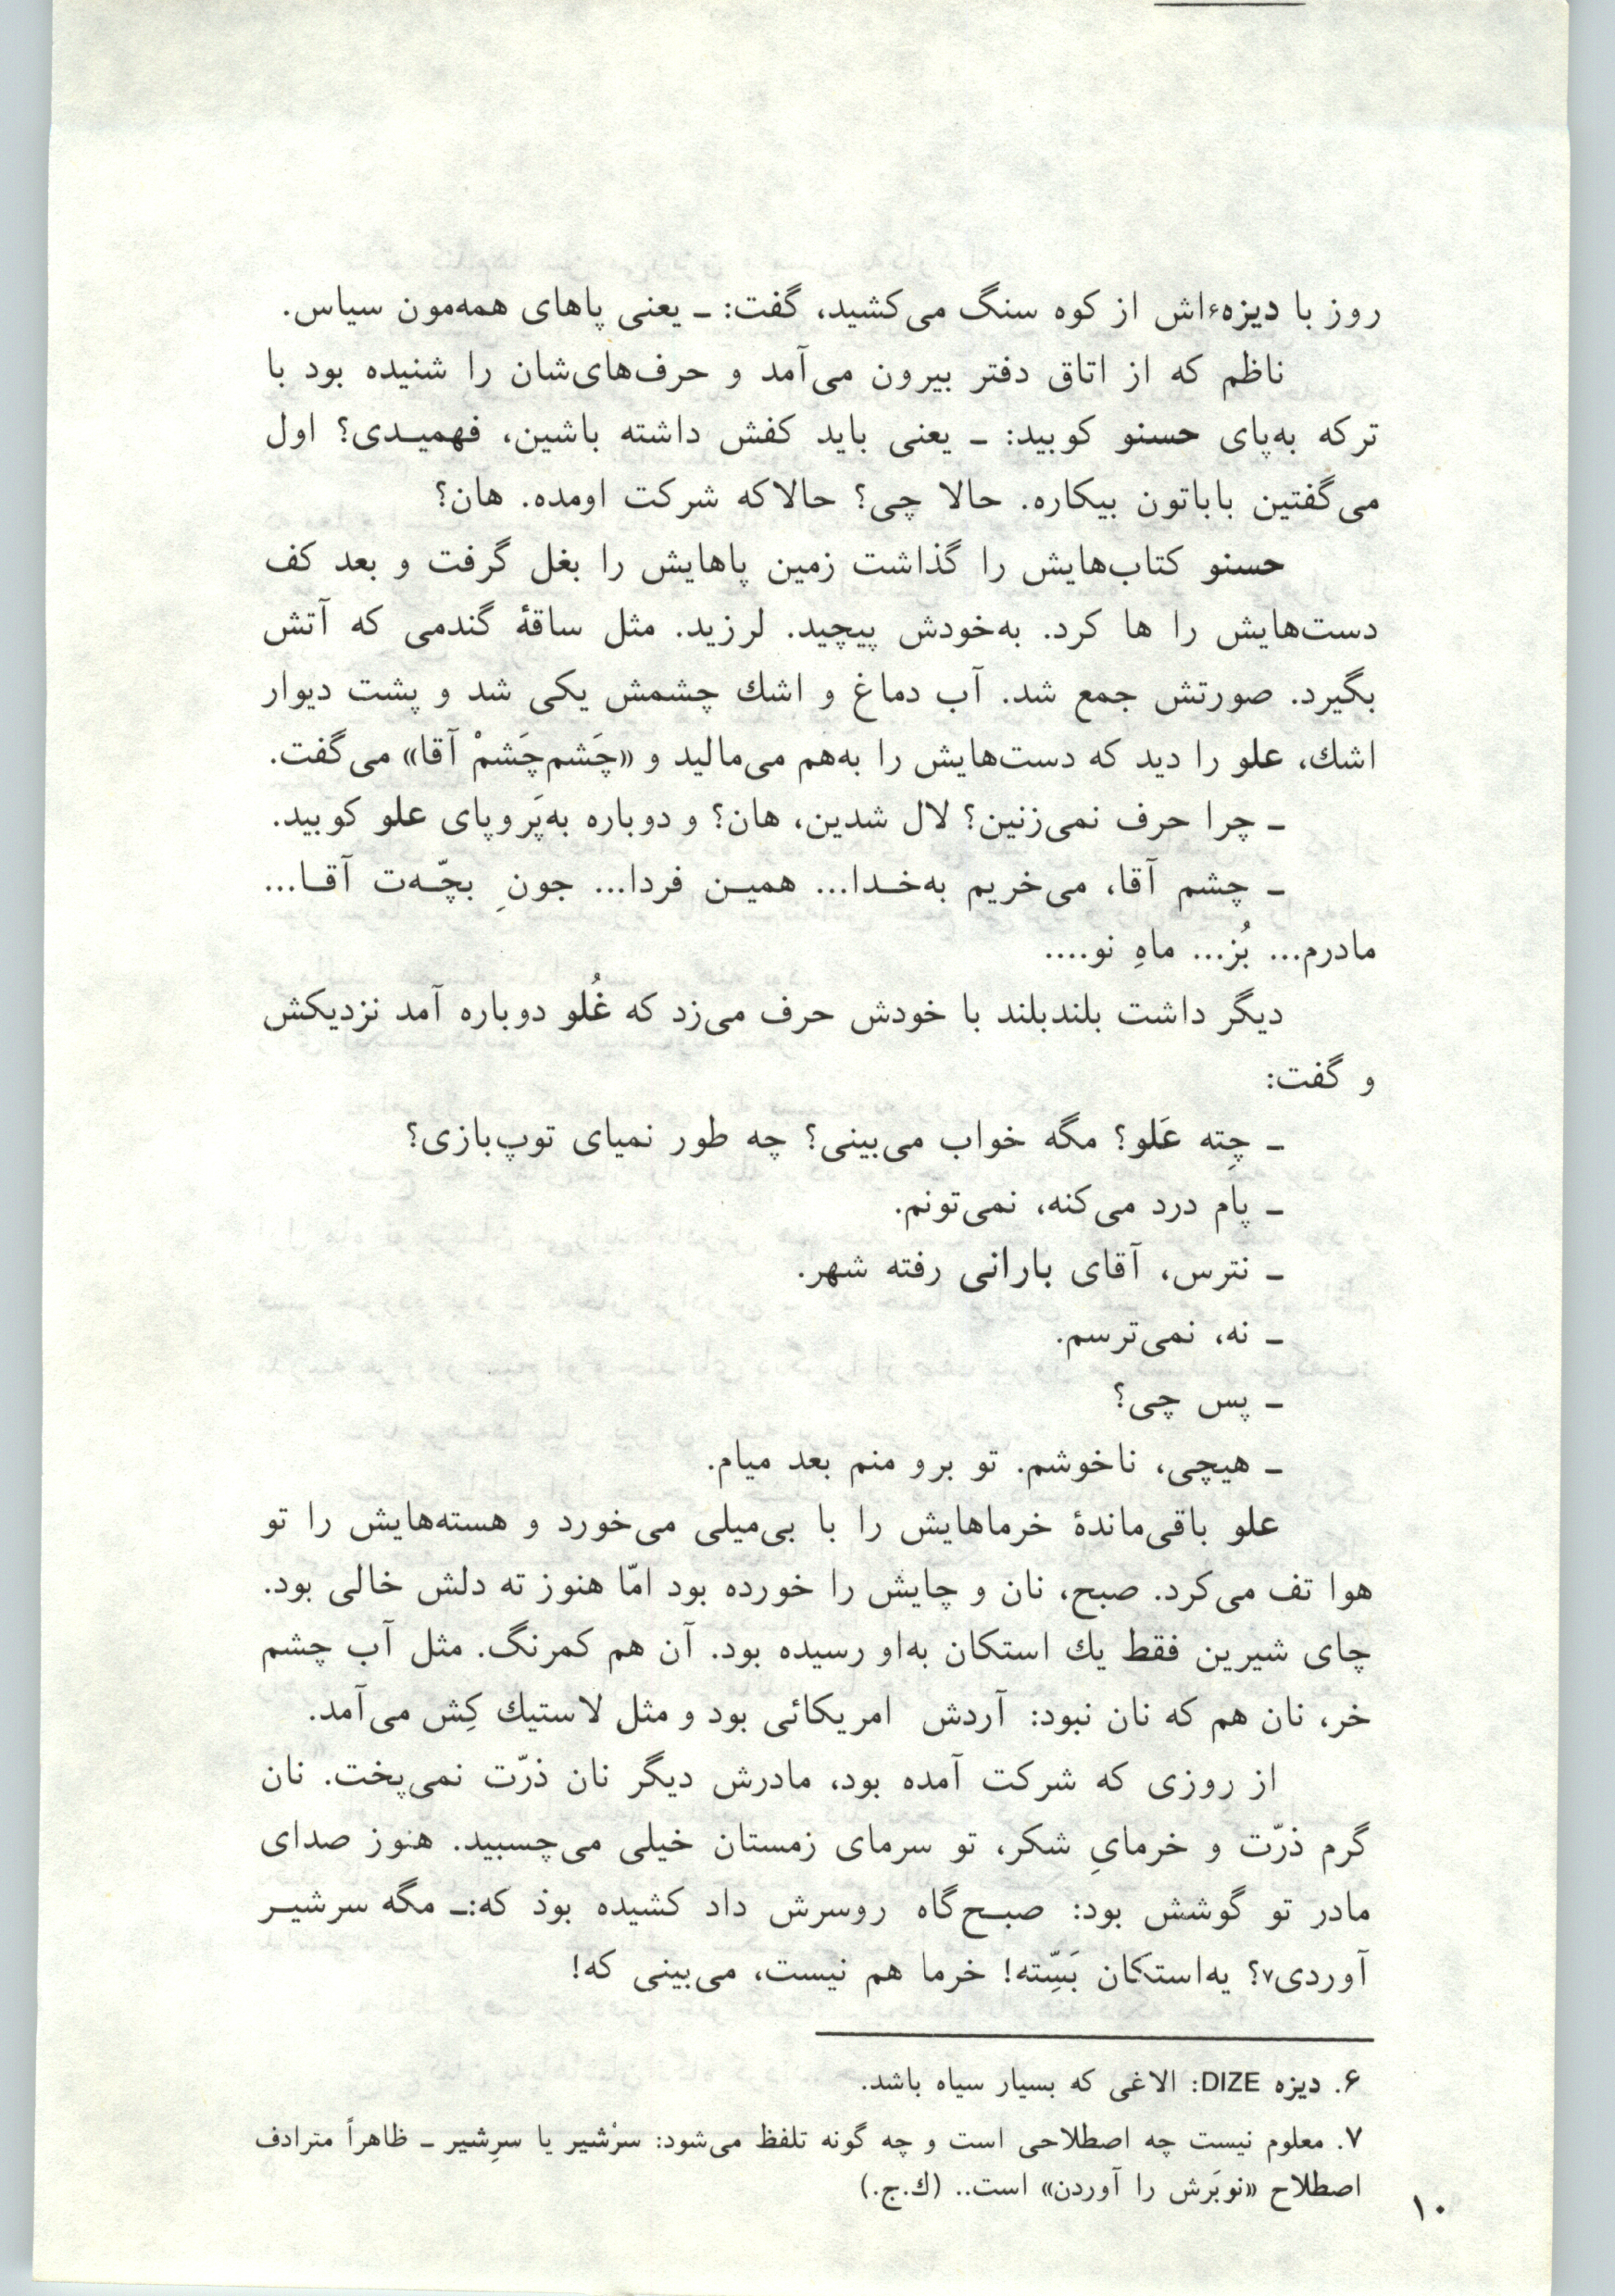 روز با دیزه⁶اش از کوه سنگ می‌کشید، گفت: ـ یعنی پاهای همه‌مون سیاس.
ناظم که از اتاق دفتر بیرون می‌آمد و حرف‌های‌شان را شنیده بود با
ترکه به‌پای حسنو کوبید: ـ یعنی باید کفش داشته باشین، فهمیـدی؟ اول
می‌گفتین باباتون بیکاره. حالا چی؟ حالاکه شرکت اومده. هان؟
حسنو کتاب‌هایش را گذاشت زمین پاهایش را بغل گرفت و بعد کف
دست‌هایش را ها کرد. به‌خودش پیچید. لرزید. مثل ساقهٔ گندمی که آتش
بگیرد. صورتش جمع شد. آب دماغ و اشك چشمش یکی شد و پشت دیوار
اشك، علو را دید که دست‌هایش را به‌هم می‌مالید و «چَشم‌چَشمْ آقا» می‌گفت.
ـ چرا حرف نمی‌زنین؟ لال شدین، هان؟ و دوباره به‌پَروپای علو کوبید.
ـ چشم آقا، می‌خریم به‌خـدا... همیـن فردا... جونِ بچّـه‌ت آقـا...
مادرم... بُز... ماهِ نو....
دیگر داشت بلندبلند با خودش حرف می‌زد که غُلو دوباره آمد نزدیکش
و گفت:
ـ چِته عَلو؟ مگه خواب می‌بینی؟ چه طور نمیای توپ‌بازی؟
ـ پام درد می‌کنه، نمی‌تونم.
ـ نترس، آقای بارانی رفته شهر.
ـ نه، نمی‌ترسم.
ـ پس چی؟
ـ هیچی، ناخوشم. تو برو منم بعد میام.
علو باقی‌ماندهٔ خرماهایش را با بی‌میلی می‌خورد و هسته‌هایش را تو
هوا تف می‌کرد. صبح، نان و چایش را خورده بود امّا هنوز ته دلش خالی بود.
چای شیرین فقط یك استکان به‌او رسیده بود. آن هم کمرنگ. مثل آب چشم
خر، نان هم که نان نبود: آردش امریکائی بود و مثل لاستیك کِش می‌آمد.
از روزی که شرکت آمده بود، مادرش دیگر نان ذرّت نمی‌پخت. نان
گرم ذرّت و خرمایِ شکر، تو سرمای زمستان خیلی می‌چسبید. هنوز صدای
مادر تو گوشش بود: صبـح‌گاه روسرش داد کشیده بوذ که:ـ مگه سرشیـر
آوردی⁷؟ یه‌استکان بَسِّته! خرما هم نیست، می‌بینی که!
۶. دیزه DIZE: الاغی که بسیار سیاه باشد.
۷. معلوم نیست چه اصطلاحی است و چه گونه تلفظ می‌شود: سرْشیر یا سرِشیر ـ ظاهراً مترادف
اصطلاح «نوبَرش را آوردن» است.. (ك.ج.)
۱۰